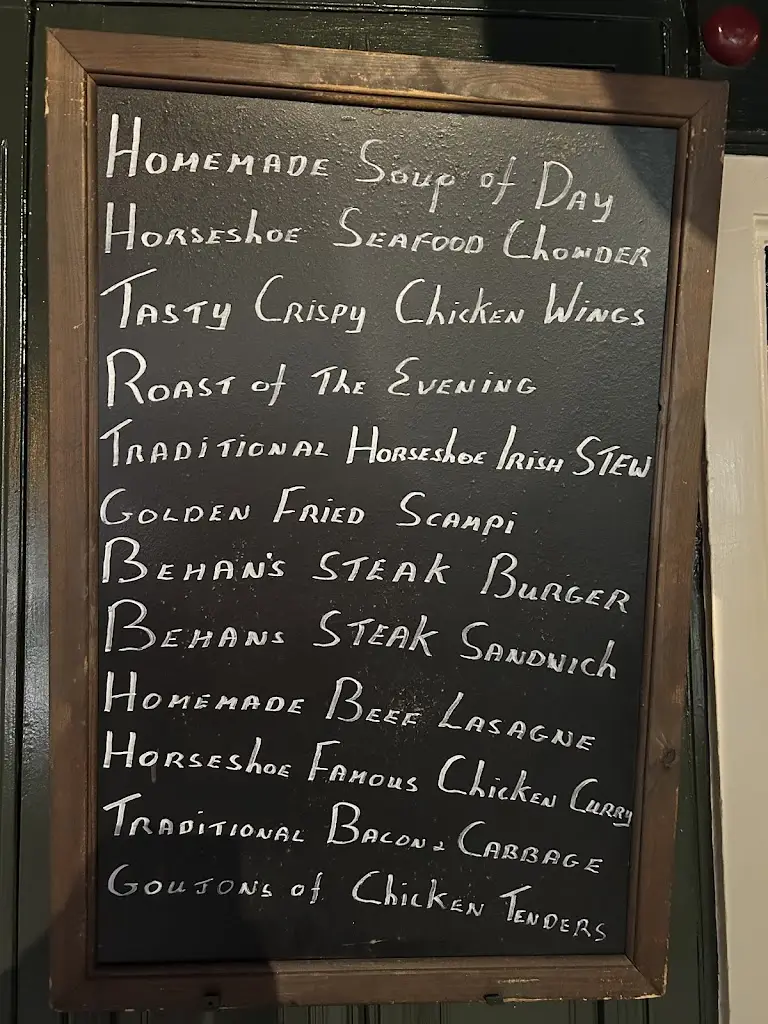 HOMEMADE Soup of DAY
HORSESHOE SEAFOOD ChOWDER
TASTY CRISPY ChicKEN WINGS
ROAST of The EVENING
TRADITIONAL HORSESHOE IRISH STEW
GOLDEN FRIED SCAMPi
BEHAN'S STEAK BURGER
BEHANS STEAK SANDWICh
HOMEMADE BEEF LASAGNE
HORSEShOE FAMOUS ChicKEN CURRY
TRADITIONAL BACON & CABBAGE
GOUJONS of ChicKEN TENDERS